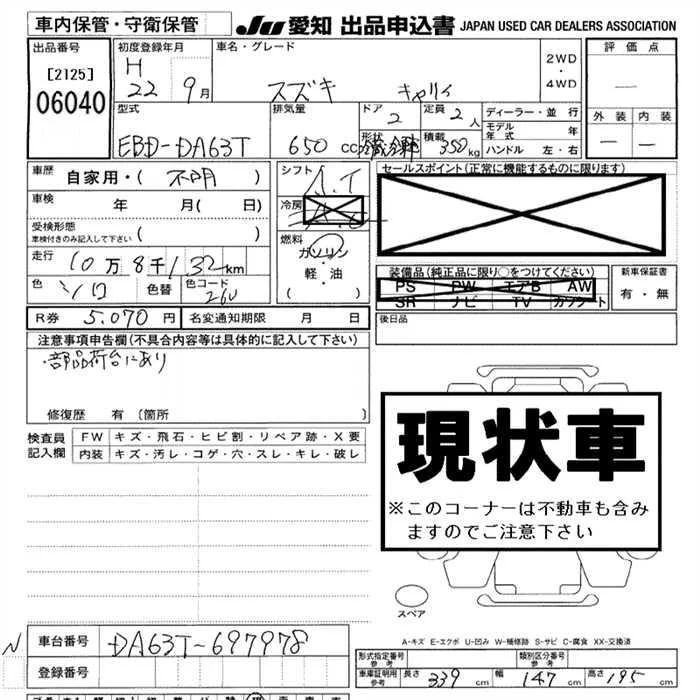 車内保管・守衛保管
JU 愛知 出品申込書 JAPAN USED CAR DEALERS ASSOCIATION
出品番号
[2125]
06040
初度登録年月
H
22 9月
車名・グレード
スズキ キャリイ
2WD
・
4WD
評価点
—
外装 内装
— —
型式
EBD-DA63T
排気量
650 CC
ドア
2
形状
定員
2人
積載
350kg
ディーラー・並行
モデル年式 年
ハンドル 左・右
車歴
自家用・( 不明 )
車検
年 月( 日)
受検形態
車検付きのみ記入して下さい ( )
走行
10万8千132km
色
シロ
色替
色コード
26U
シフト
A.T
冷房
燃料
ガソリン
・
軽・油
( )
セールスポイント(正常に機能するものに限ります)
装備品(純正品に限り〇をつけてください)
PS PW エアB AW
SR ナビ TV カワシート
新車保証書
有・無
R券 5,070 円
名変通知期限 月 日
後日品
注意事項申告欄(不具合内容等は具体的に記入して下さい)
・部品荷台にあり
修復歴 有 〔箇所 〕
検査員記入欄
FW キズ・飛石・ヒビ割・リペア跡・X要
内装 キズ・汚レ・コゲ・穴・スレ・キレ・破レ
現状車
※このコーナーは不動車も含み
ますのでご注意下さい
スペア
A-キズ E-エクボ U-凹み W-補修跡 S-サビ C-腐食 XX-交換済
N
車台番号 DA63T-697978
登録番号
形式指定番号 参考
類別区分番号 参考
車庫証明用 参考
長さ 339 cm
幅 147 cm
高さ 195 cm